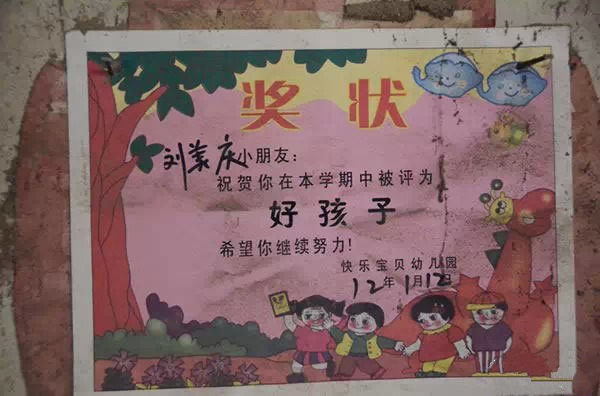 奖状
刘美庆小朋友：
祝贺你在本学期中被评为
好孩子
希望你继续努力！
快乐宝贝幼儿园
12年1月12日